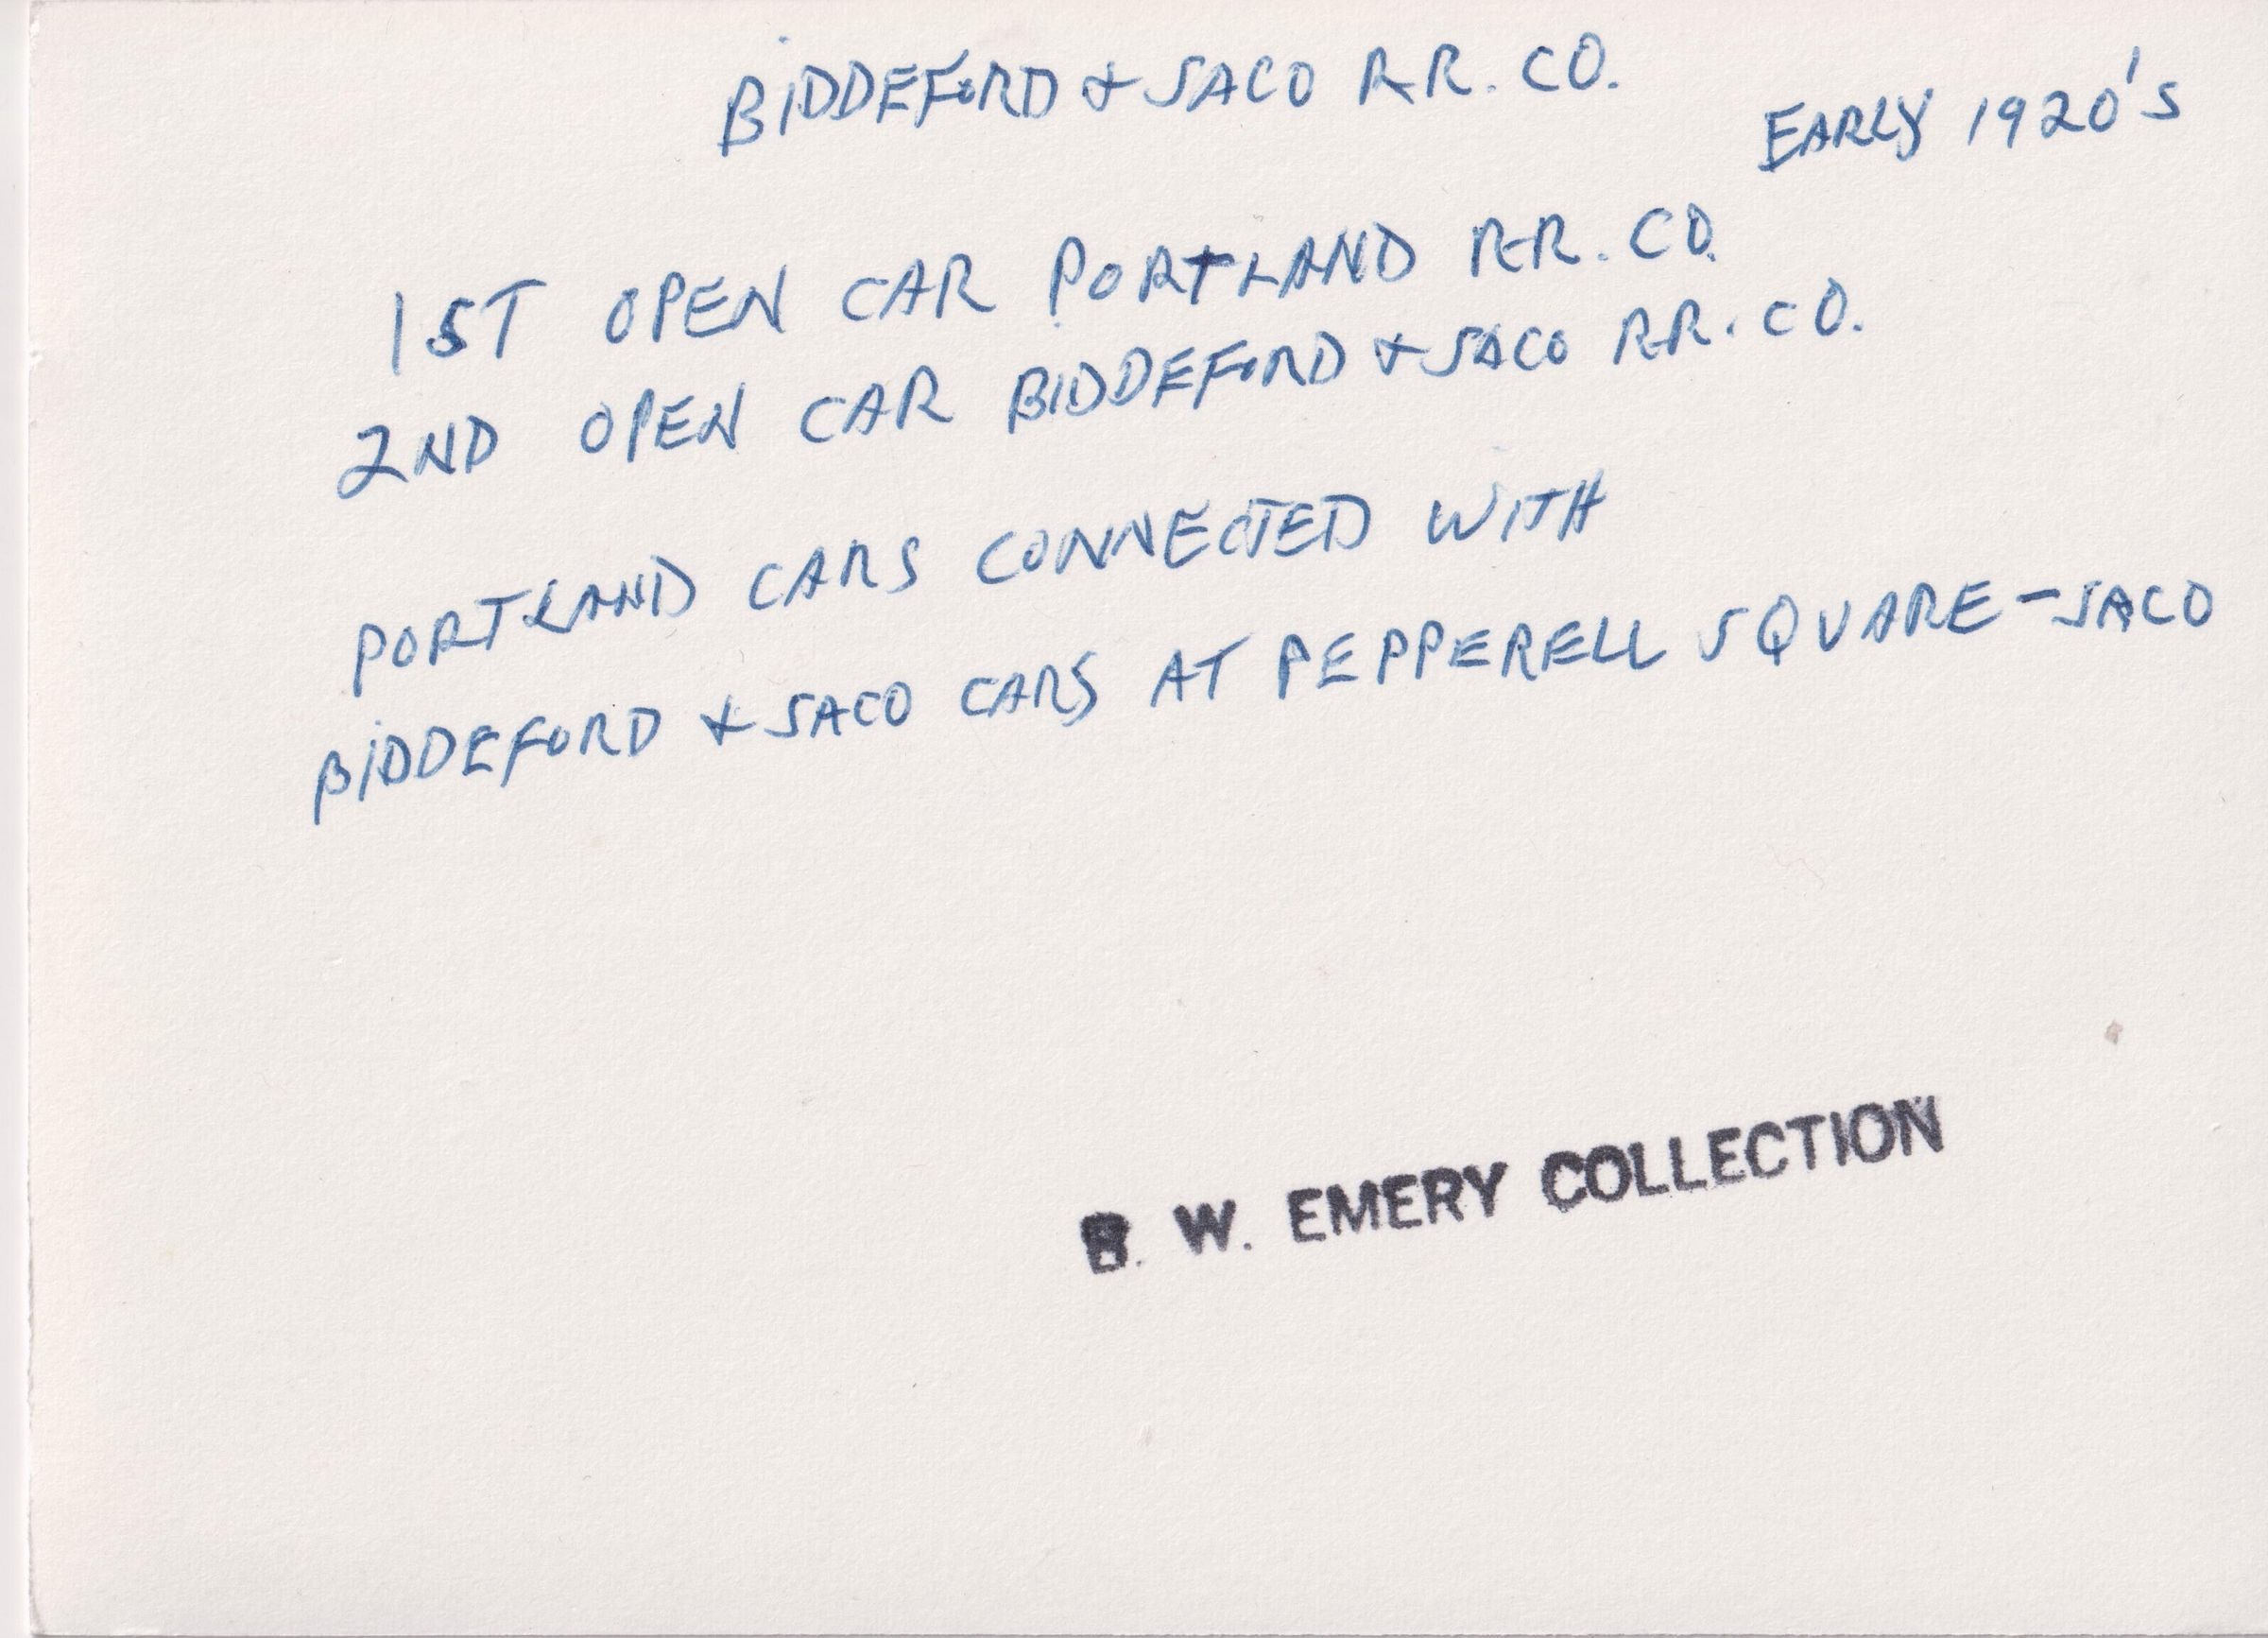 BIDDEFORD & SACO RR. CO.
EARLY 1920'S
1ST OPEN CAR PORTLAND RR. CO.
2ND OPEN CAR BIDDEFORD & SACO RR. CO.
PORTLAND CARS CONNECTED WITH
BIDDEFORD & SACO CARS AT PEPPERELL SQUARE-SACO
B. W. EMERY COLLECTION